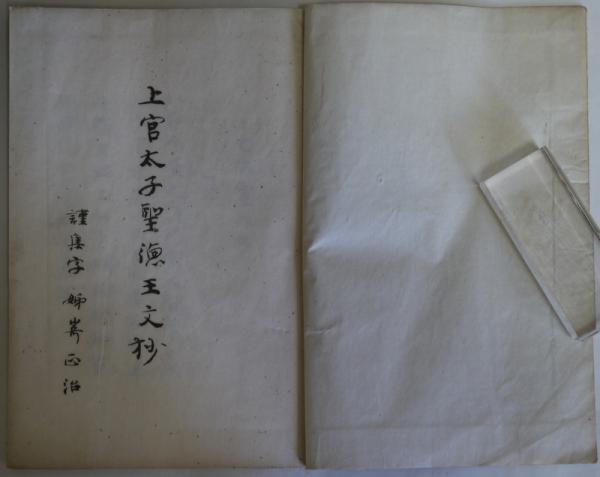 上宮太子聖德王文抄
謹集字 姉嵜正治